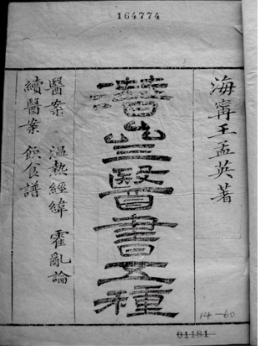 164774
海寧王孟英著
潛齋醫書五種
醫案 溫熱經緯 霍亂論
續醫案 飲食譜
14-60
01181